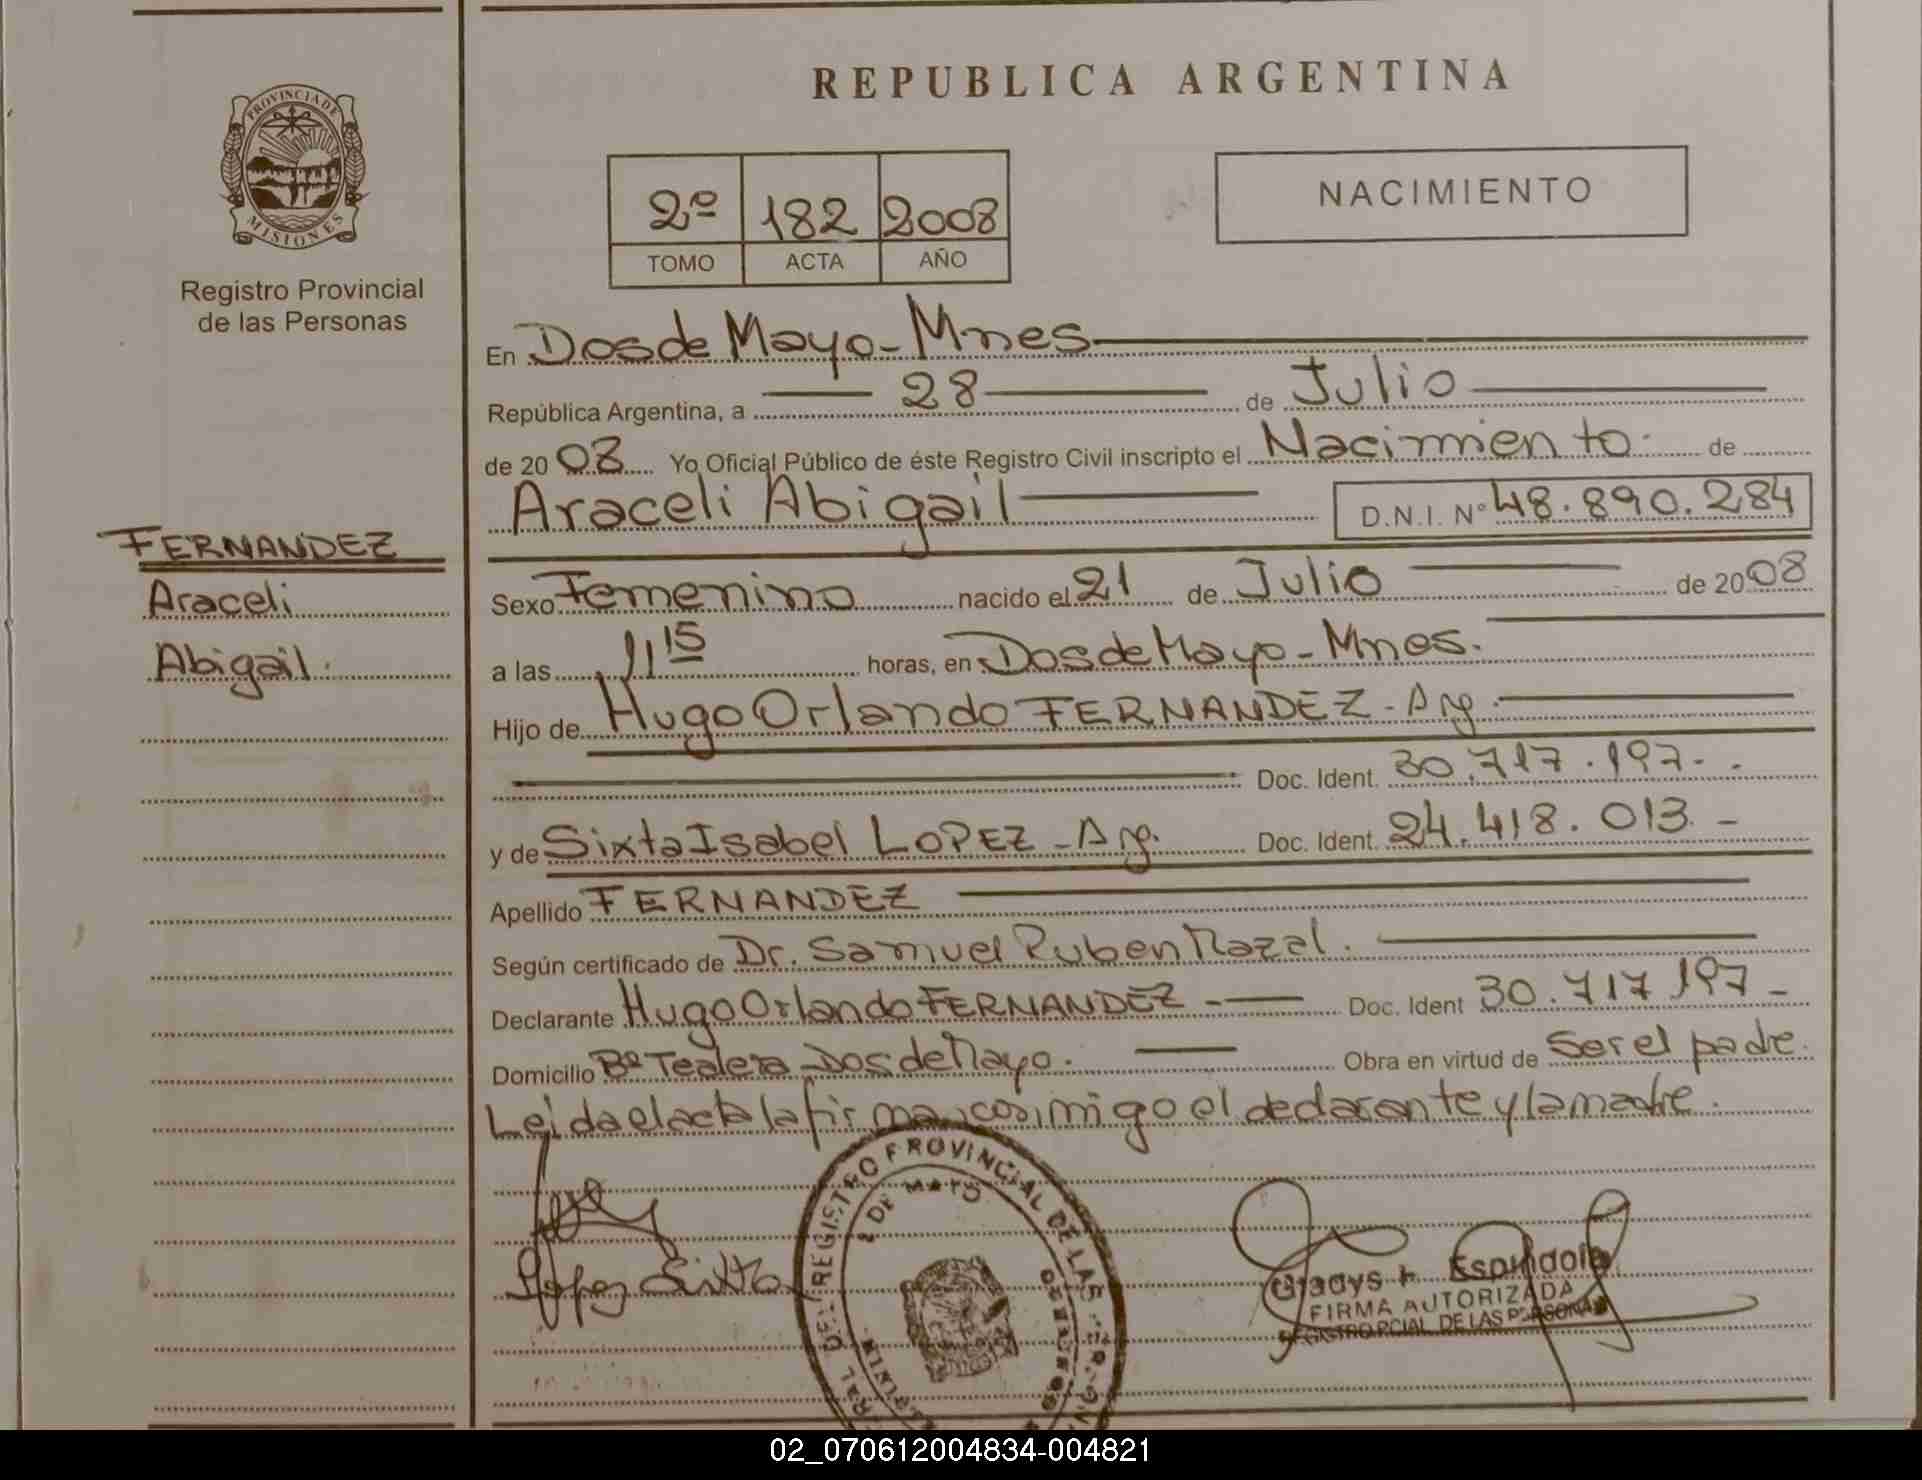 REPUBLICA ARGENTINA
PROVINCIA DE
MISIONES
Registro Provincial
de las Personas
2º 182 2008
TOMO ACTA AÑO
NACIMIENTO
En Dos de Mayo - Mnes
República Argentina, a 28 de Julio
de 2008 Yo Oficial Público de éste Registro Civil inscripto el Nacimiento de
Araceli Abigail D.N.I. Nº 48.890.284
FERNANDEZ
Araceli
Abigail.
Sexo Femenino nacido el 21 de Julio de 2008
a las 11 15 horas, en Dos de Mayo - Mnes.
Hijo de Hugo Orlando FERNANDEZ - Arg.
Doc. Ident. 30.717.197
y de Sixta Isabel LOPEZ - Arg. Doc. Ident. 24.418.013 -
Apellido FERNANDEZ
Según certificado de Dr. Samuel Ruben
Declarante Hugo Orlando FERNANDEZ - Doc. Ident 30.717.197 -
Domicilio Bº Tealera - Dos de Mayo. Obra en virtud de Ser el padre.
Leida el acta la firman conmigo el declarante y la madre.
Lopez Sixta
REGISTRO PROVINCIAL DE LAS
2 DE MAYO
Gladys Espindola
FIRMA AUTORIZADA
REGISTRO PCIAL. DE LAS PERSONAS
02_070612004834-004821